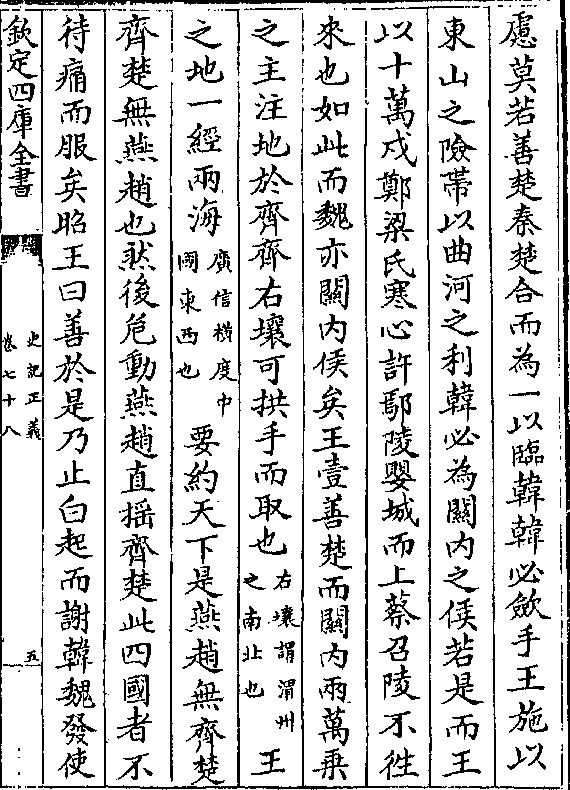 慮莫若善楚秦楚合而為一以臨韓韓必斂手王施以
東山之險帶以曲河之利韓必為關內之侯若是而王
以十萬戍鄭梁氏寒心許鄢陵嬰城而上蔡召陵不徃
來也如此而魏亦關内侯矣王壹善楚而關内兩萬乗
之主注地於齊齊右壤可拱手而取也右壤謂渭州之南北也王
之地一經兩海廣信橫度中國東西也要約天下是燕趙無齊楚
齊楚無燕趙也然後危動燕趙直揺齊楚此四國者不
待痛而服矣昭王曰善於是乃止白起而謝韓魏發使
欽定四庫全書 史記正義 卷七十八 五